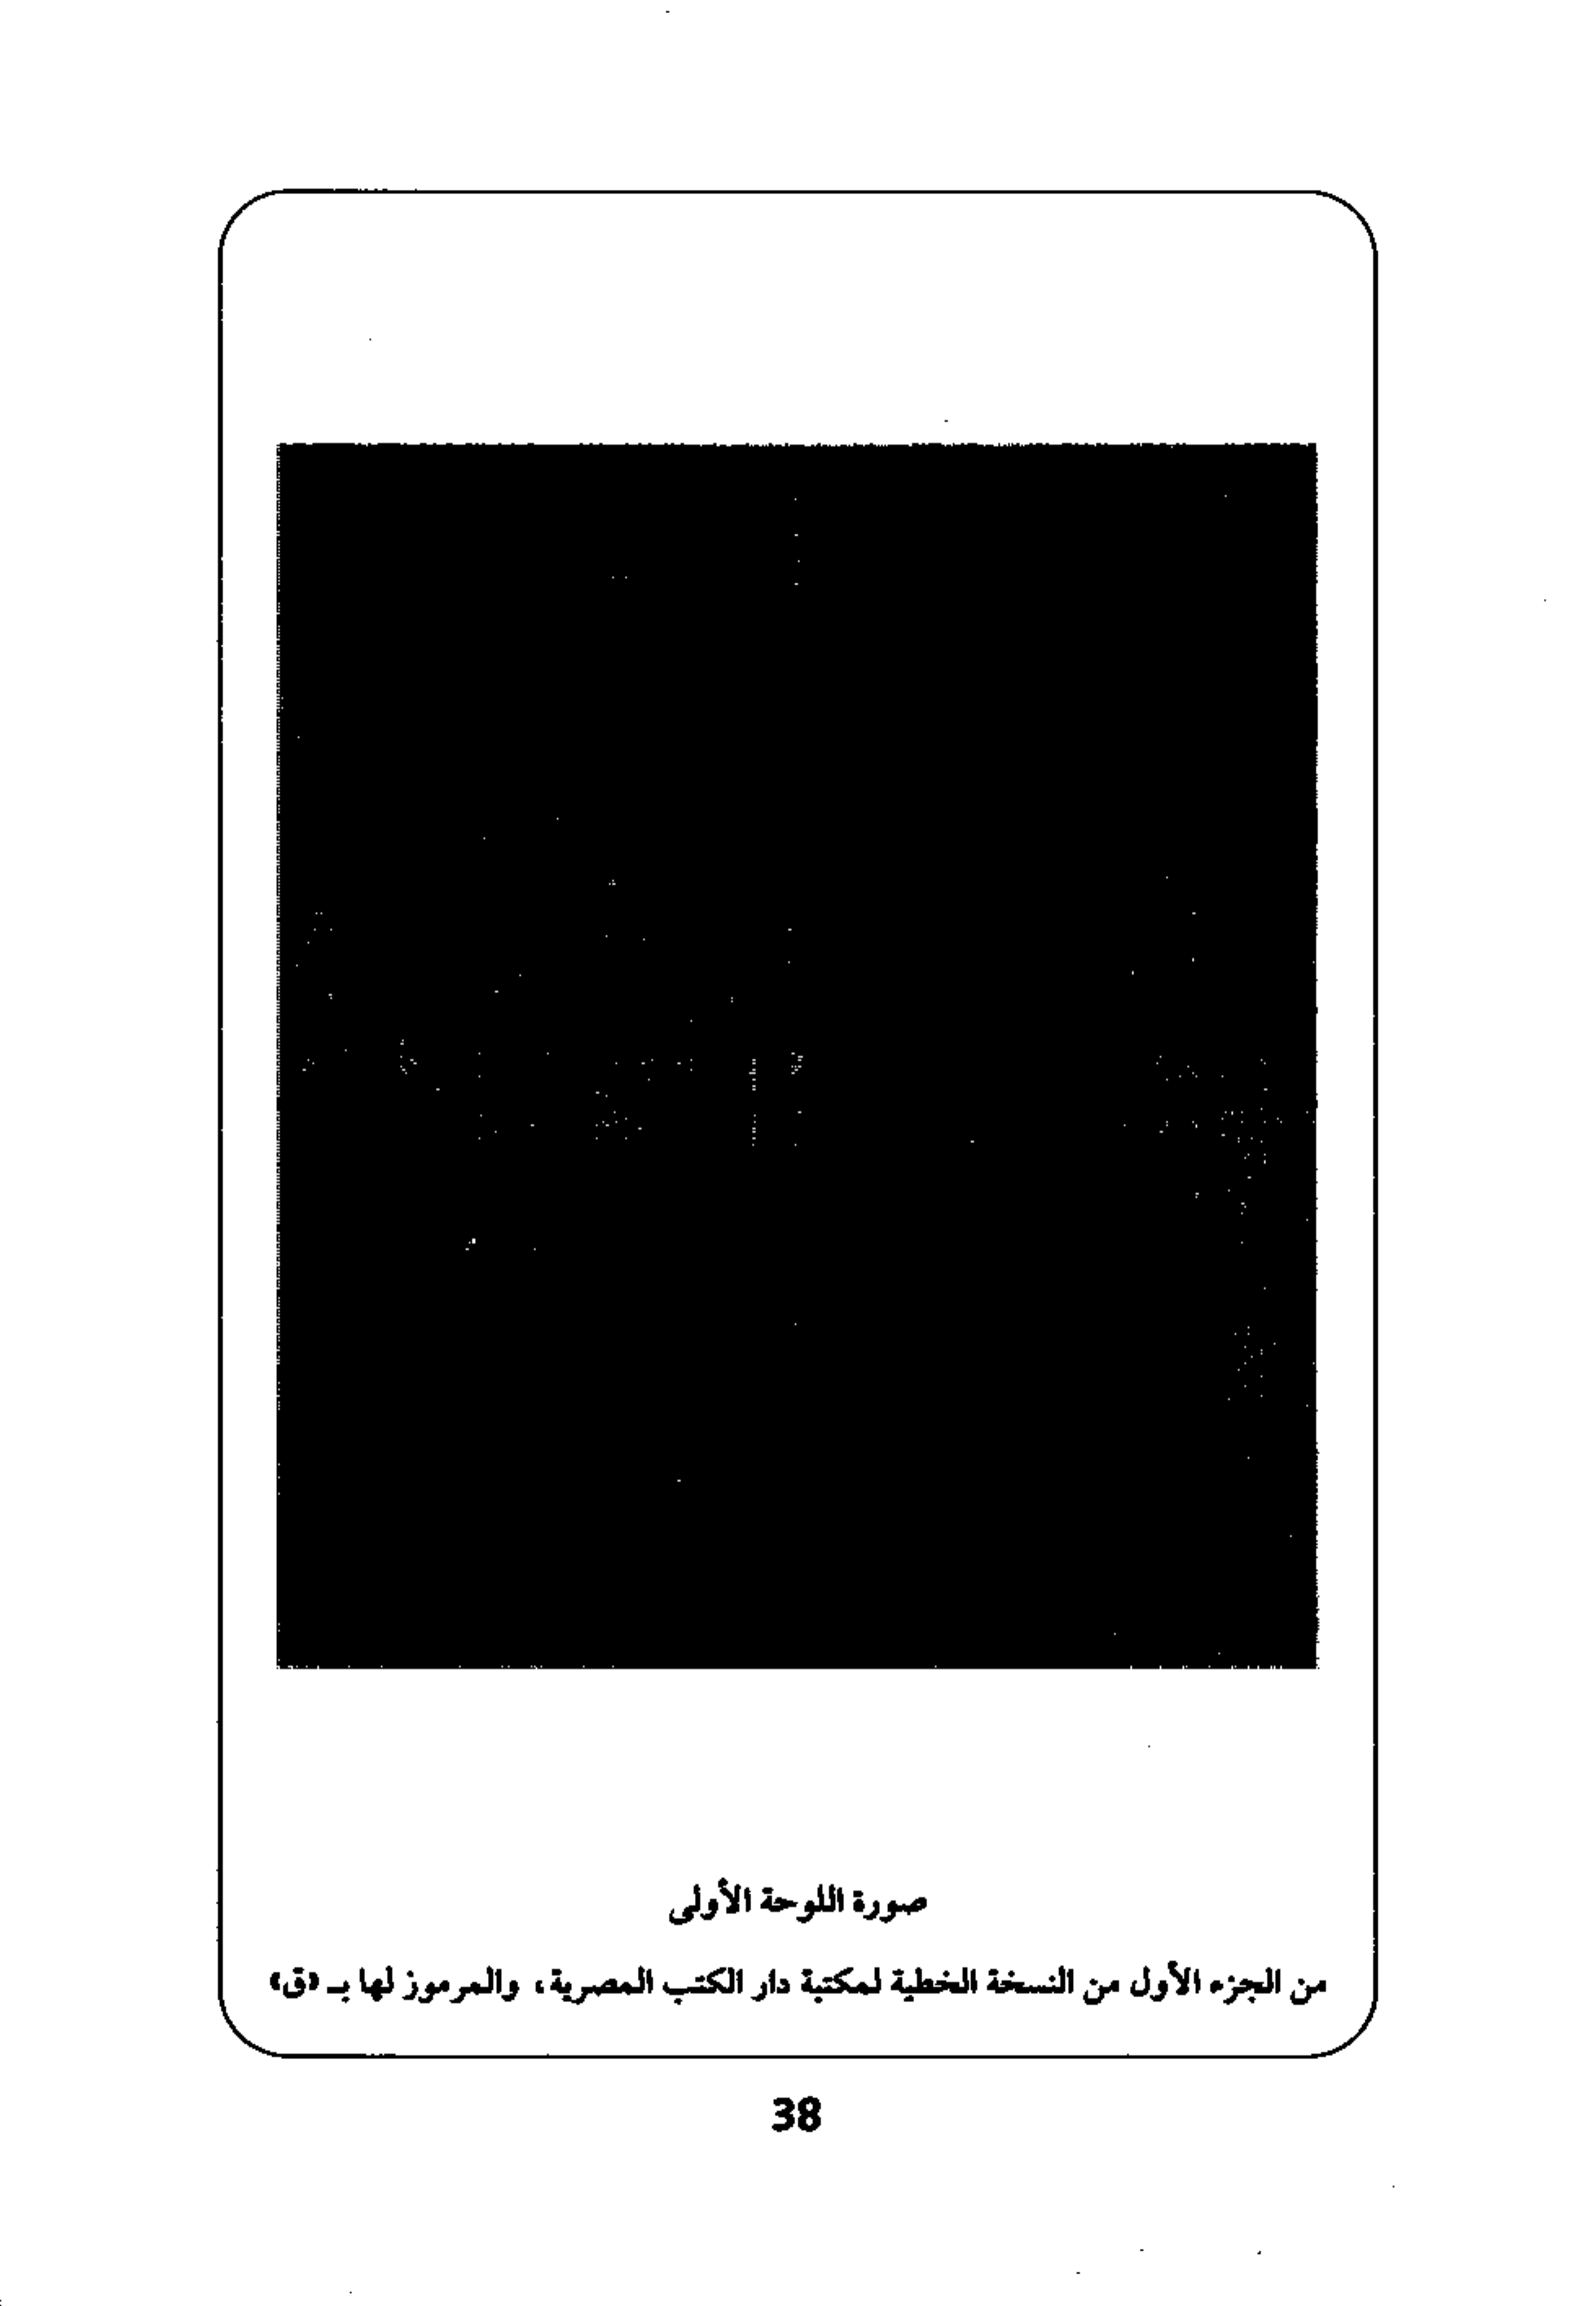 صورة اللوحة الأولى
من الجزء الأول من النسخة الخطية لمكتبة دار الكتب المصرية، والمرموز لها بـ «ق»
38